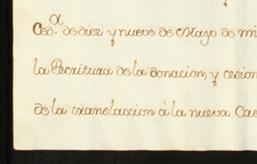 Ced.ª de diez y nueve de Mayo de mi
la Escritura de la donacion, y cesion
de la translaccion á la nueva Cas